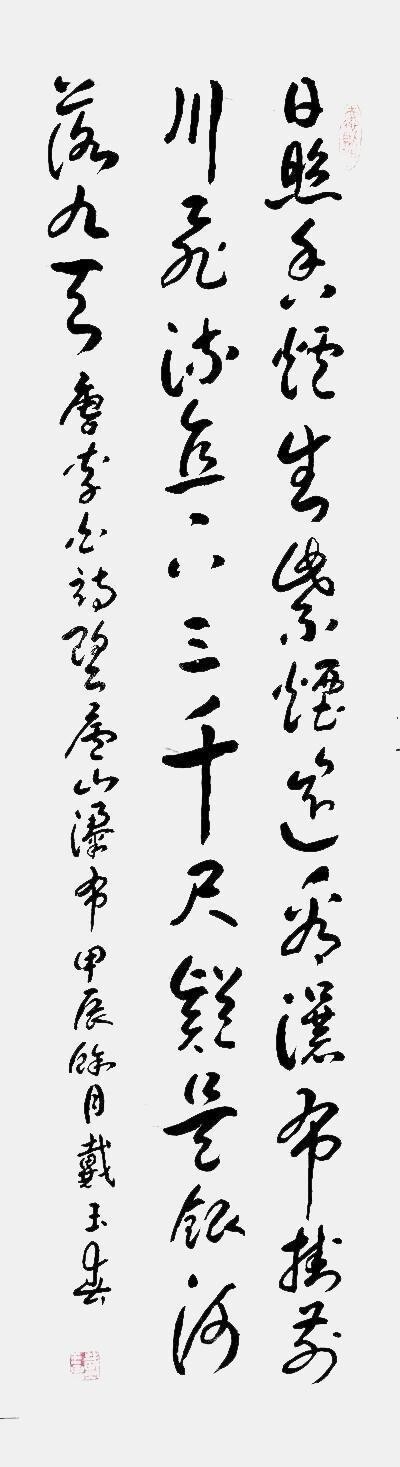 日照香爐生紫煙遥看瀑布掛前
川飛流直下三千尺疑是銀河
落九天唐李白詩望廬山瀑布甲辰餘月戴玉春